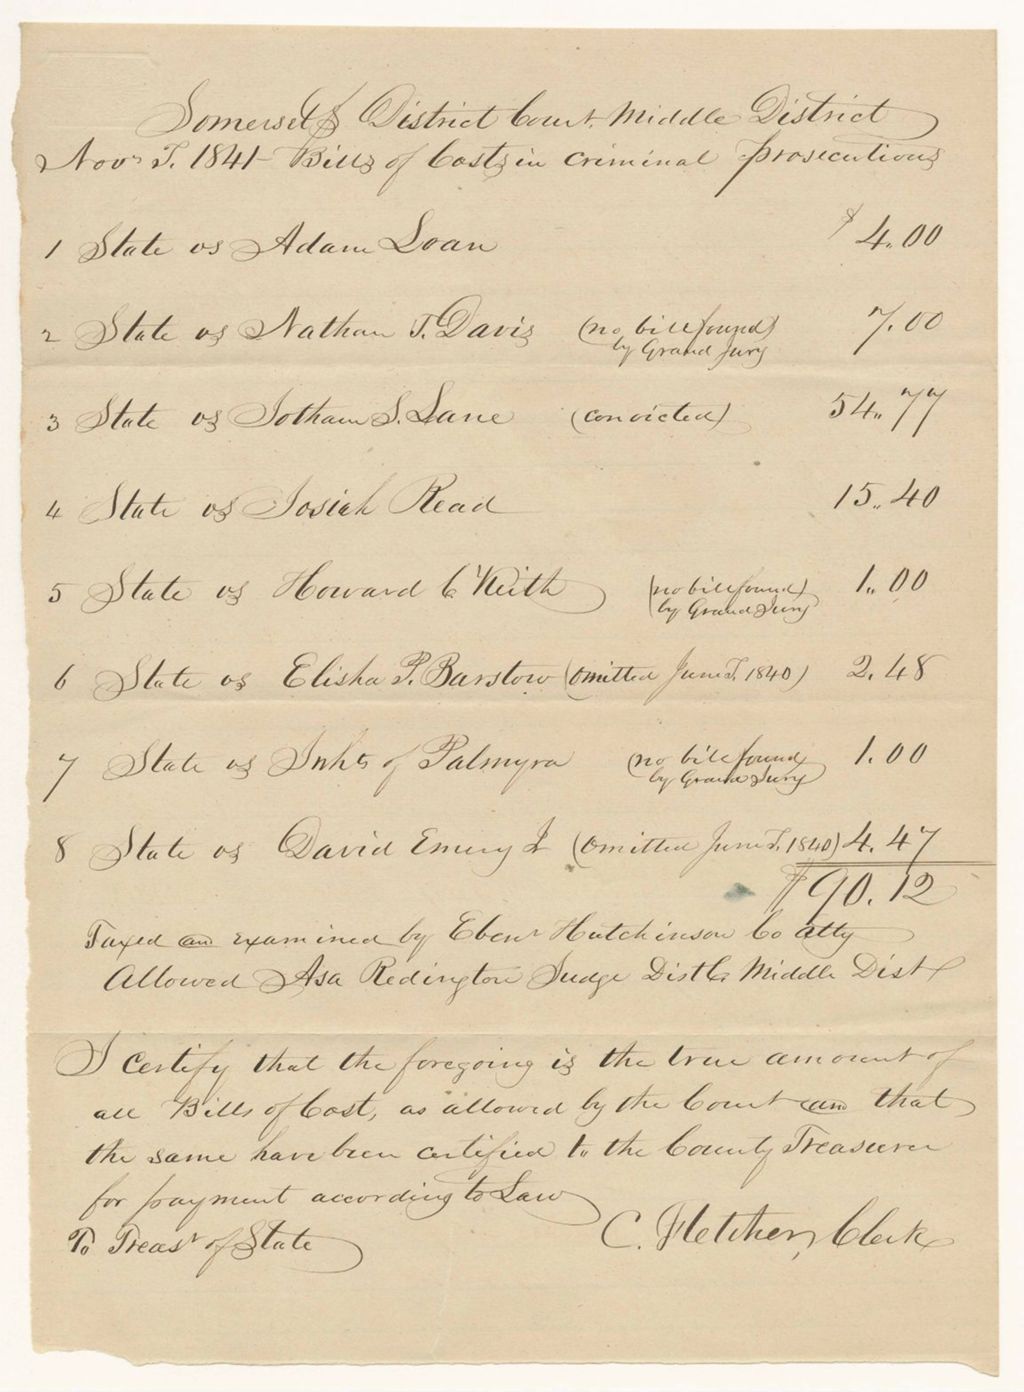 Somerset ss District Court Middle District
Novr T. 1841 Bills of Costs in criminal prosecutions
1 State vs Adam Loan $4.00
2 State vs Nathan T. Davis (no bill found by Grand Jury 7.00
3 State vs Jotham S. Lane (convicted) 54.77
4 State vs Josiah Read 15.40
5 State vs Howard C Keith (no bill found) by Grand Jury 1.00
6 State vs Elisha P. Barstow (omitted June T. 1840) 2.48
7 State vs Inhts of Palmyra (no bill found by Grand Jury) 1.00
8 State vs David Emery Jr (omitted June T. 1840) 4.47
$90.12
Taxed and examined by Ebenr Hutchinson Co atty
Allowed Asa Redington Judge Dist C. Middle Dist
I certify that the foregoing is the true amount of
all Bills of Cost, as allowed by the Court and that
the same have been certified to the County Treasurer
for payment according to Law
C. Fletcher, Clerk
To Treasr of State